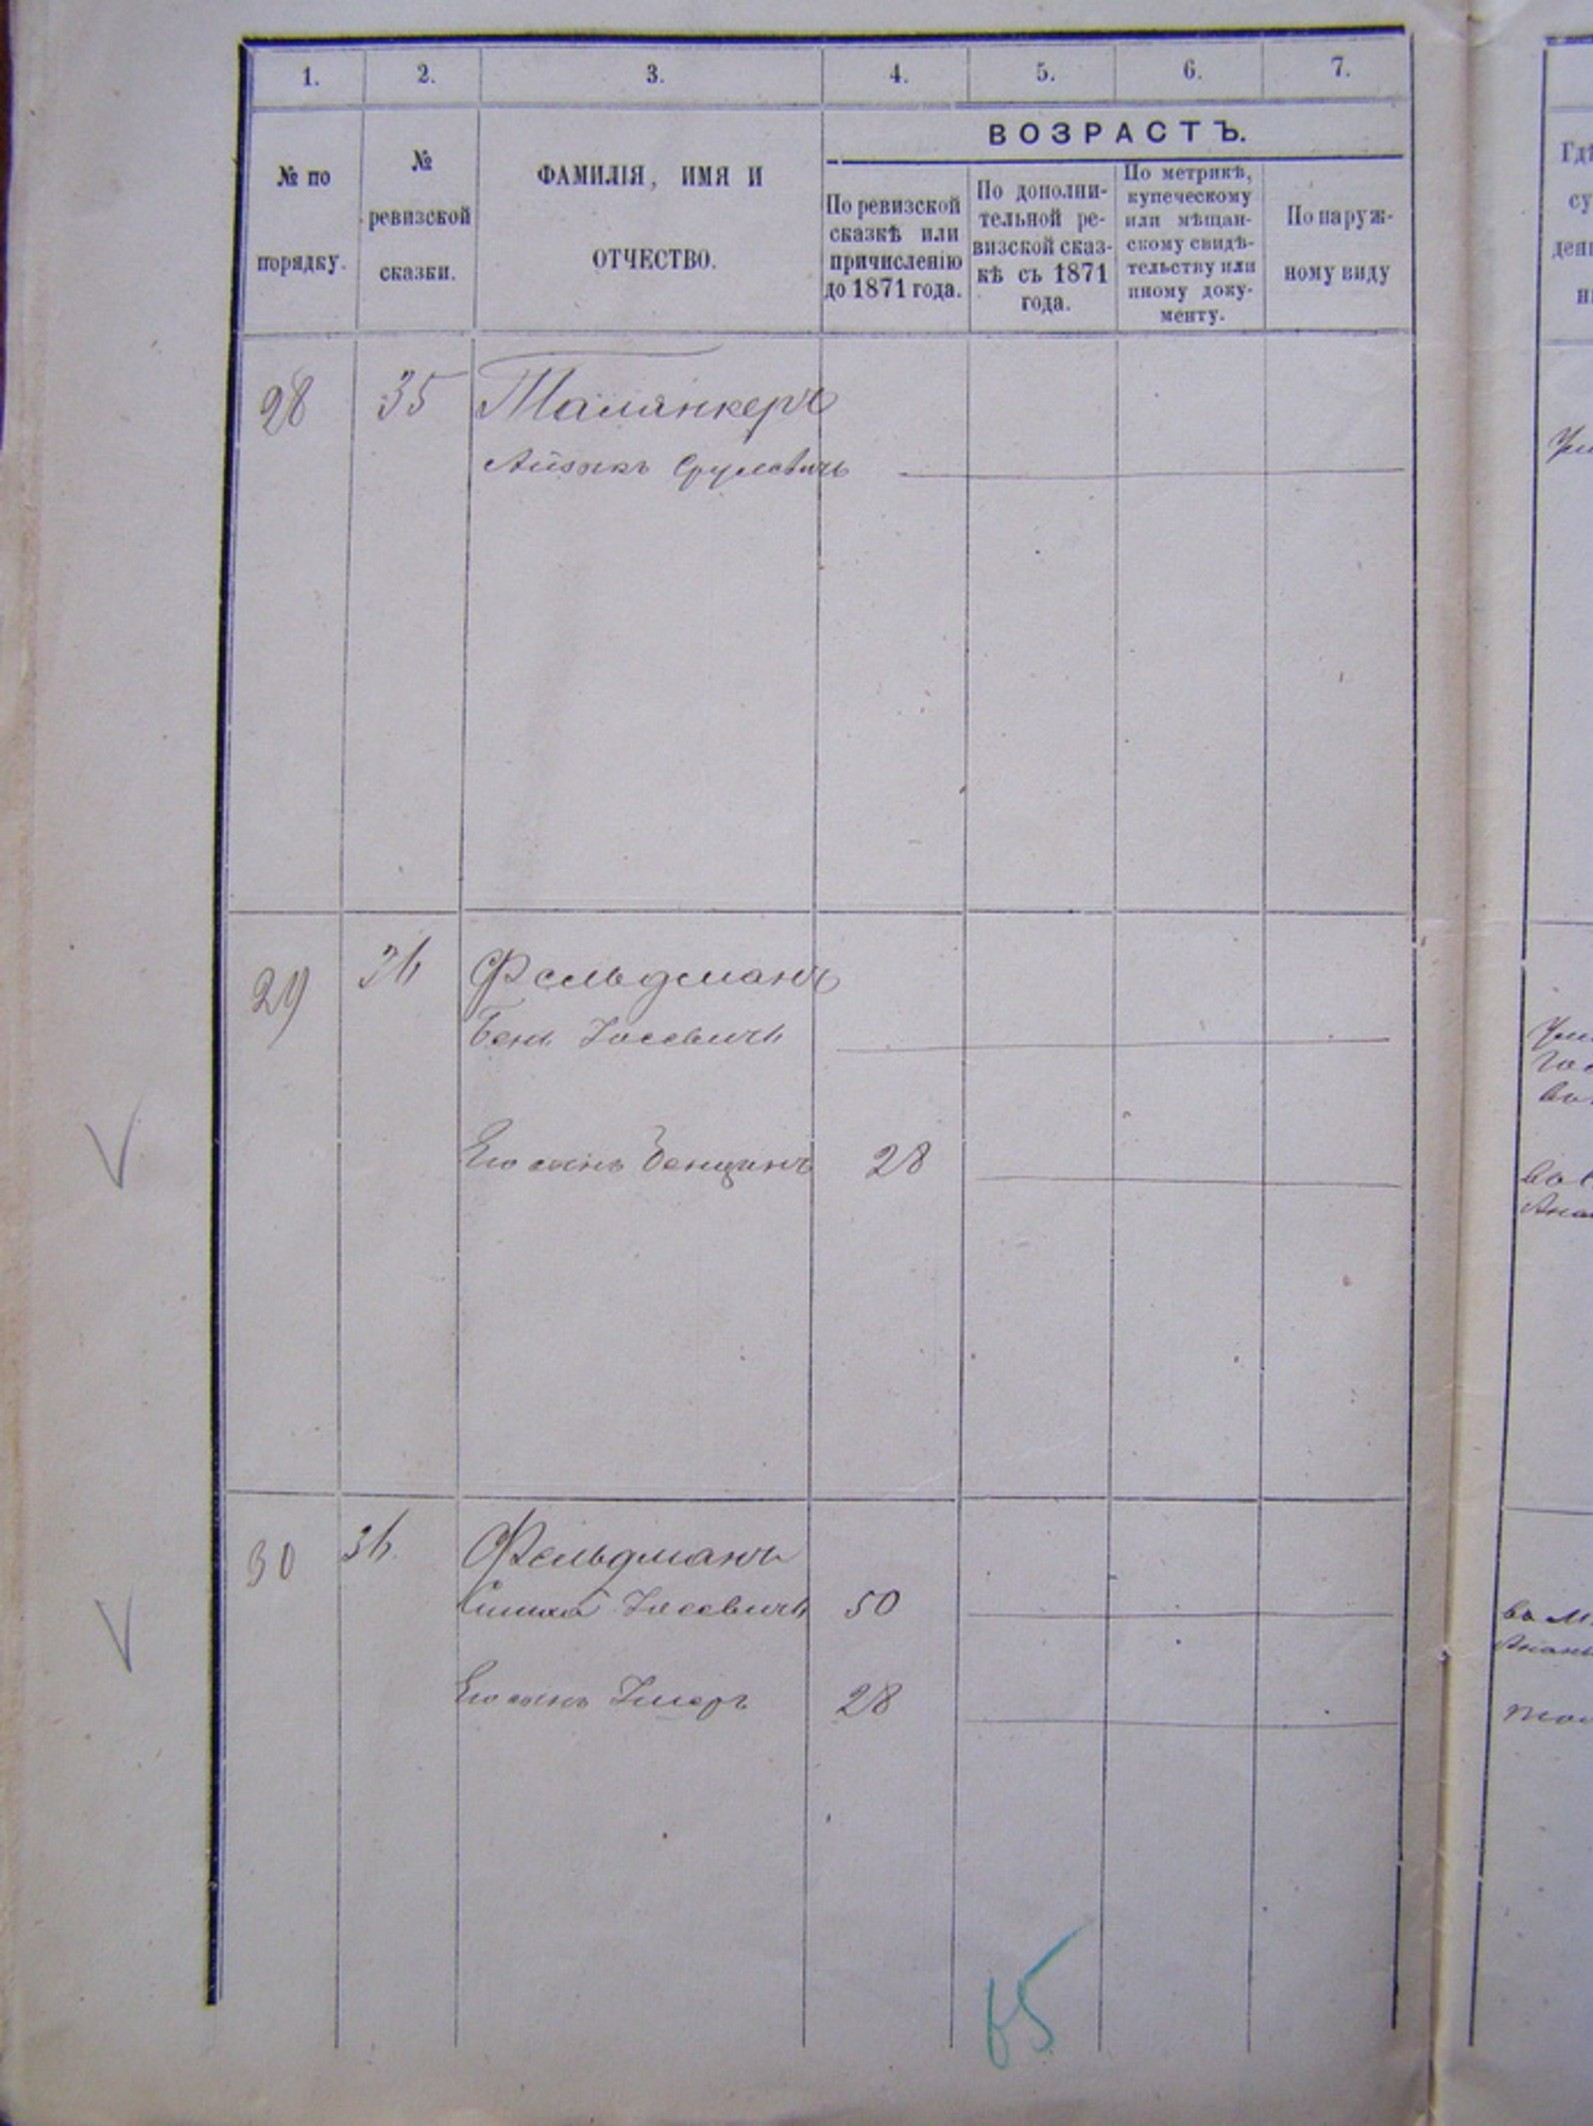 1. 2. 3. 4. 5. 6. 7.
№ по
порядку.
№
ревизской
сказки.
ФАМИЛІЯ, ИМЯ И
ОТЧЕСТВО.
ВОЗРАСТЪ.
По ревизской
сказкѣ или
причисленію
до 1871 года.
По дополни-
тельной ре-
визской сказ-
кѣ съ 1871
года.
По метрикѣ,
купеческому
или мѣщан-
скому свидѣ-
тельству или
иному доку-
менту.
По наруж-
ному виду
28 35 Талянкеръ
Айзикъ Сруловичъ
29 36 Фельдманъ
Бенъ Іосевичъ
Его сынъ Бенціонъ 28
30 36. Фельдманъ
Симха Іосевичъ 50
Его сынъ 28
65